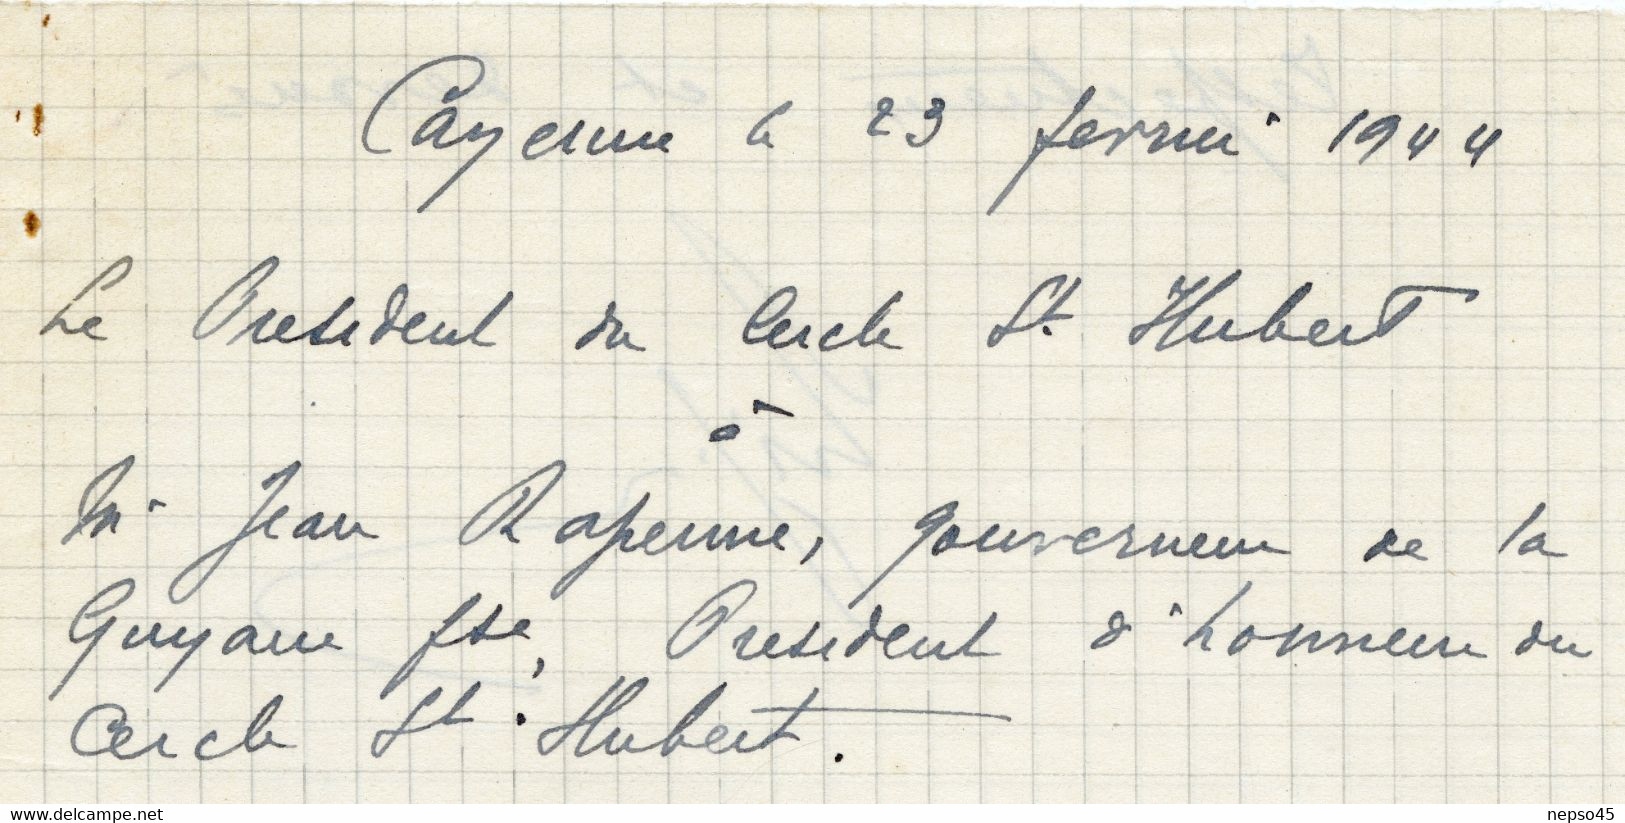 Cayenne le 23 fevrier 1944
Le President du Cercle St. Hubert
à
Mr Jean Rapenne, gouverneur de la
Guyane fse, President d'honneur du
Cercle St. Hubert.
www.delcampe.net
nepso45